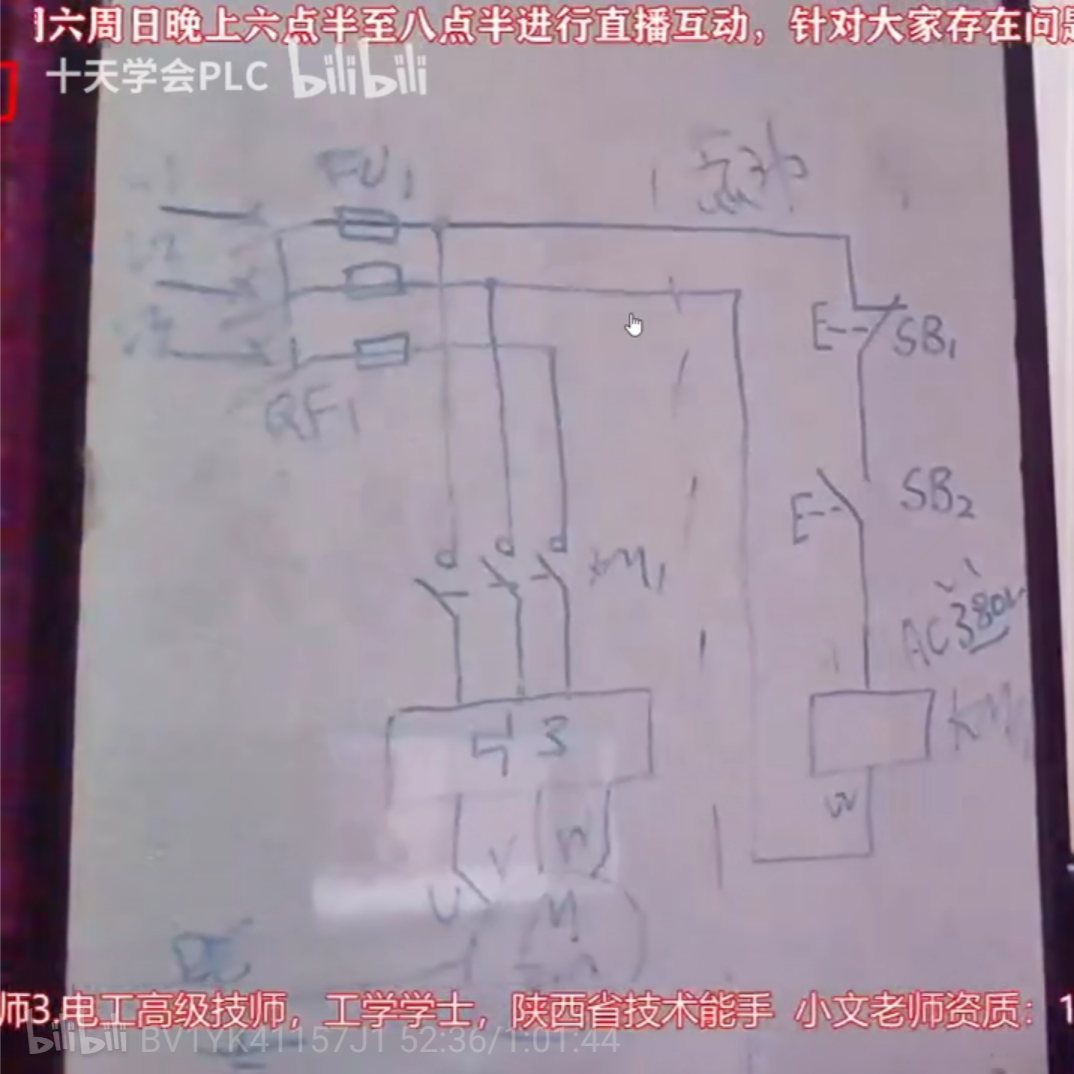 六周日晚上六点半至八点半进行直播互动，针对大家存在问题
十天学会PLC bilibili
FU1
QF1
SB1
SB2
KM1
AC380V
KM1
U V W
M
师3.电工高级技师，工学学士，陕西省技术能手 小文老师资质：1
bilibili BV1YK41157J1 52:36/1:01:44